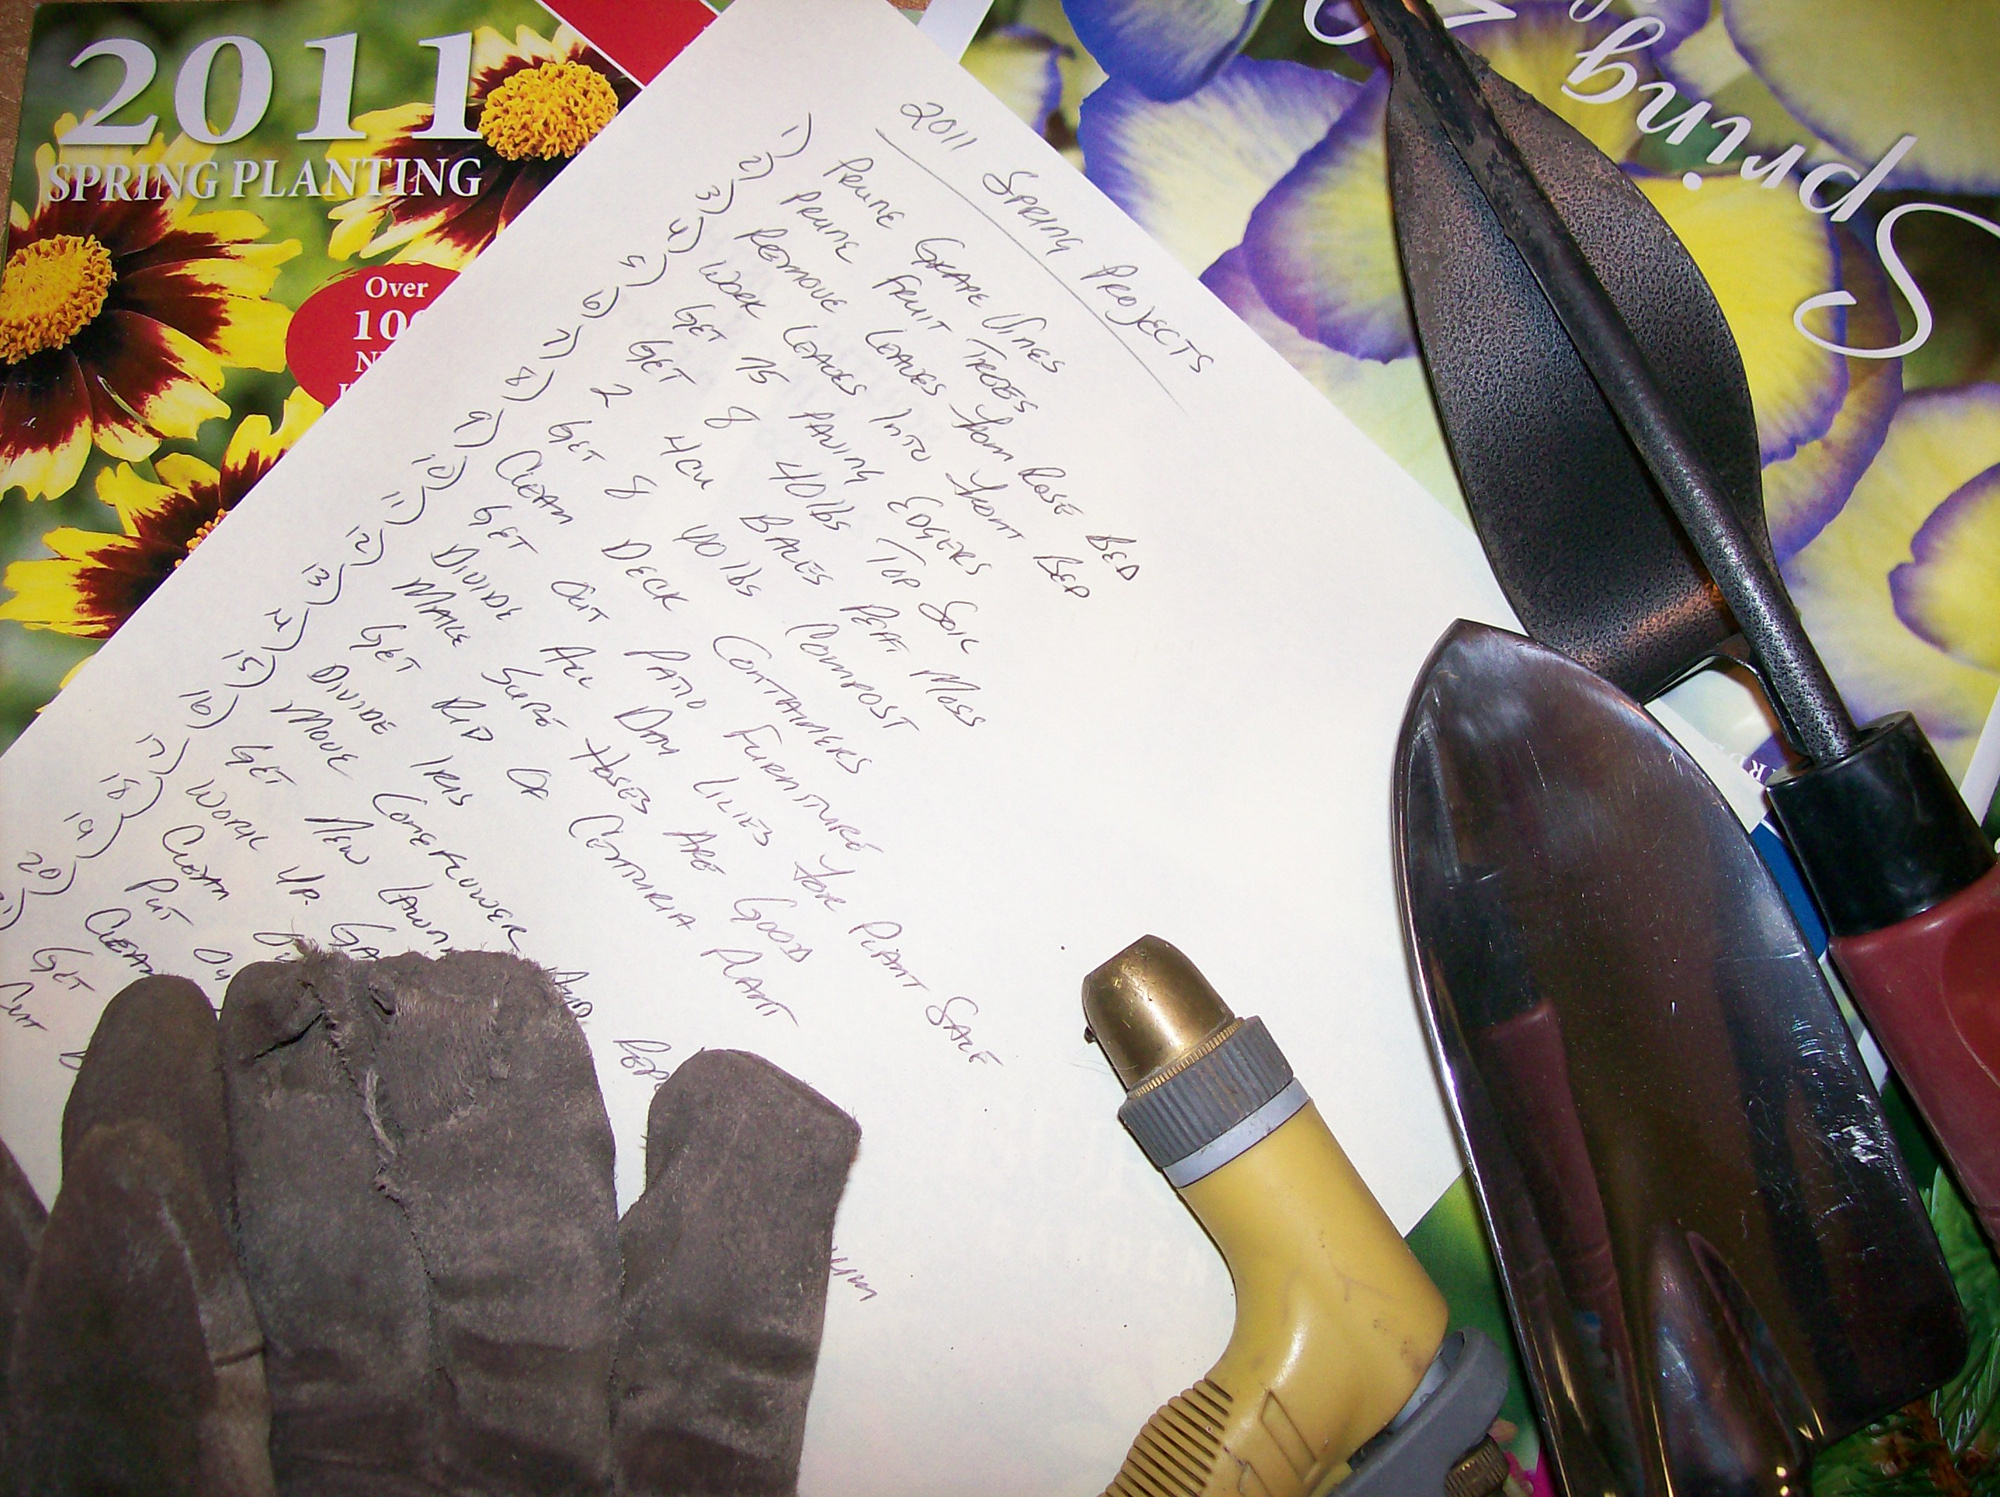 2011
SPRING PLANTING
Over
100
Spring
2011 SPRING PROJECTS
1) PRUNE GRAPE VINES
2) PRUNE FRUIT TREES
3) REMOVE LEAVES FROM ROSE BED
4) WORK LEAVES INTO FRONT BED
5) GET 75 PAVING EDGERS
6) GET 8 40lbs TOP SOIL
7) 2 4CU BALES PEAT MOSS
8) GET 8 40 lbs COMPOST
9) CLEAN DECK CONTAINERS
10) GET OUT PATIO FURNITURE
11) DIVIDE ALL DAY LILIES FOR PLANT SALE
12) MAKE SURE HOSES ARE GOOD
13) GET RID OF CENTURIA PLANT
14) DIVIDE IRIS
15) MOVE CONEFLOWER AND
16) GET NEW LAWN
17) WORK UP
18) CLEAN
19) PUT
20) CLEAN
GET
CUT